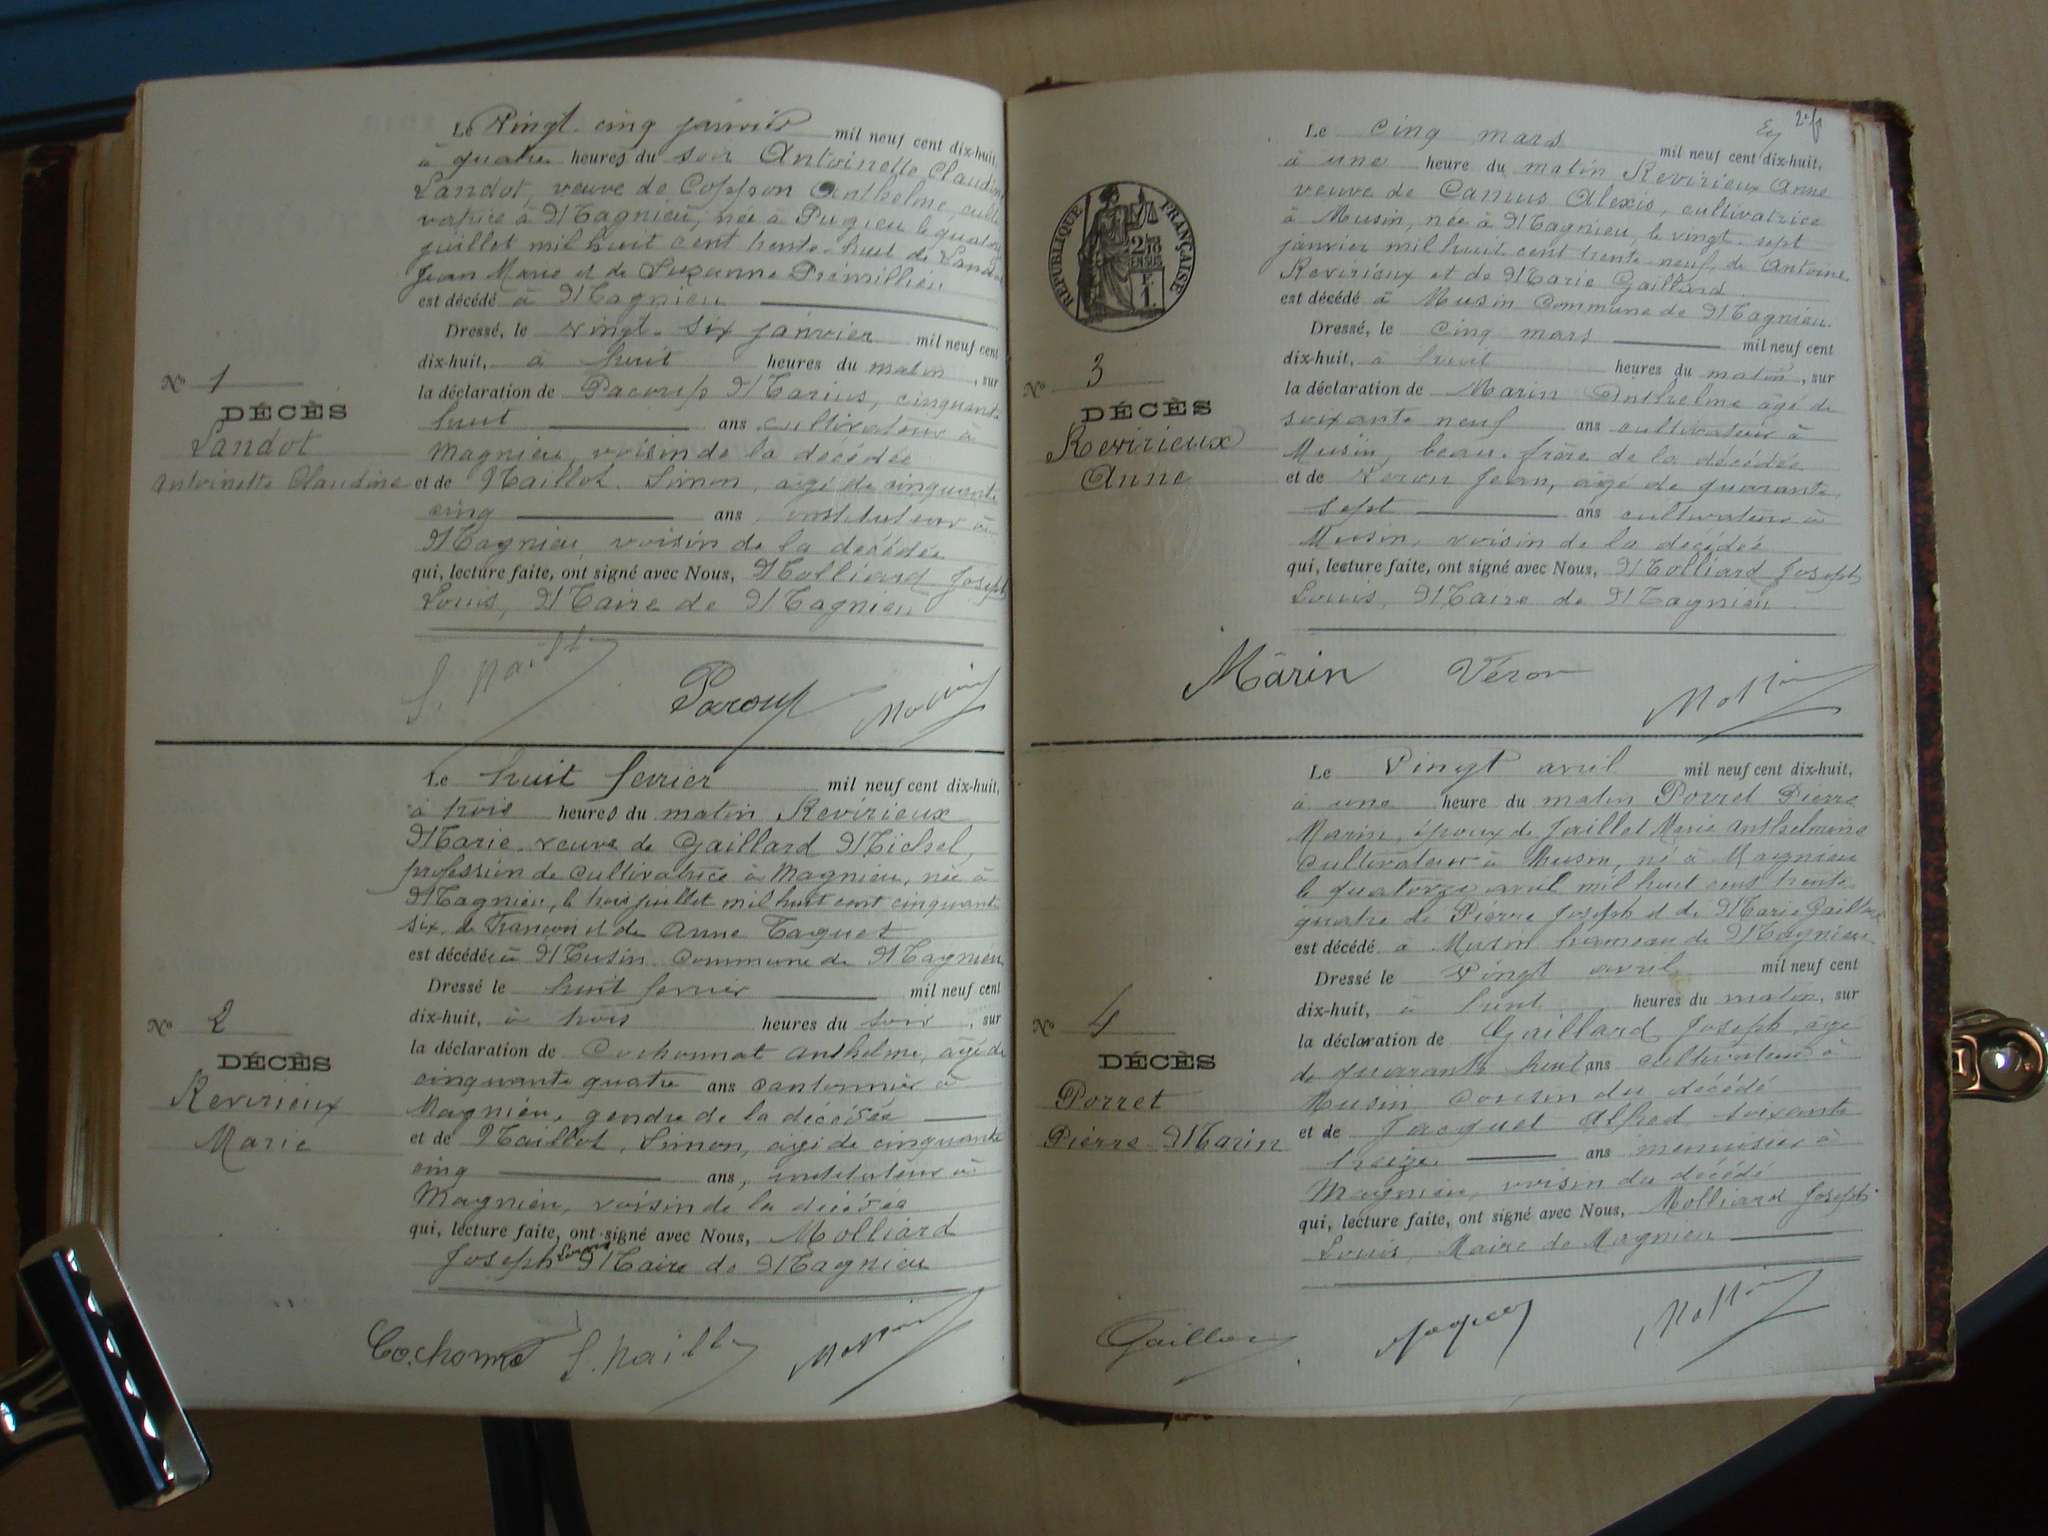 Le Vingt cinq janvier mil neuf cent dix-huit,
à quatre heures du soir Antoinette Claudine
Landot, veuve de Coppon Anthelme, culti
vatrice à Magnieu, née à Pugieu le quatre
juillet mil huit cent trente-huit de Landot
Jean Marie et de Suzanne Prémillieu
est décédé à Magnieu
Dressé, le vingt-six janvier mil neuf cent
dix-huit, à huit heures du matin, sur
la déclaration de Marius, cinquante
N° 1
huit ans cultivateur à
DÉCÈS
Landot
Magnieu, voisin de la décédée
Antoinette Claudine
et de Maillot Simon, âgé de cinquante
cinq ans instituteur à
Magnieu voisin de la décédée
qui, lecture faite, ont signé avec Nous, Molliard Joseph
Louis, Maire de Magnieu
Le huit fevrier mil neuf cent dix-huit,
à trois heures du matin Revirieux
Marie veuve de Gaillard Michel,
profession de cultivatrice à Magnieu, née à
Magnieu, le trois juillet mil huit cent cinquante
six de François et de Anne Taguet
est décédée à Musin Commune de Magnieu
Dressé le huit fevrier mil neuf cent
N° 2
dix-huit, à trois heures du soir, sur
DÉCÈS
la déclaration de Cochonnat Anthelme, âgé de
Revirieux
cinquante quatre ans cantonnier à
Marie
Magnieu, gendre de la décédée
et de Maillot Simon, âgé de cinquante
cinq ans, instituteur à
Magnieu, voisin de la décédée
qui, lecture faite, ont signé avec Nous, Molliard
Joseph Louis Maire de Magnieu
2
Le cinq mars mil neuf cent dix-huit,
à une heure du matin Revirieux Anne
veuve de Camus Alexis, cultivatrice
à Musin, née à Magnieu, le vingt-sept
janvier mil huit cent trente-neuf, de Antoine
Revirieux et de Marie Gaillard
est décédé à Musin Commune de Magnieu
RÉPUBLIQUE FRANÇAISE
Dressé, le cinq mars mil neuf cent
dix-huit, à huit heures du matin, sur
N° 3
la déclaration de Marin Anthelme âgé de
DÉCÈS
soixante neuf ans cultivateur à
Revirieux
Musin, beau-frère de la décédée
Anne
et de Veron Jean, âgé de quarante
sept ans cultivateur à
Musin, voisin de la décédée
qui, lecture faite, ont signé avec Nous, Molliard Joseph
Louis, Maire de Magnieu
Marin Véron
Le Vingt avril mil neuf cent dix-huit,
à une heure du matin Porret Pierre
Marin, époux de Jaillet Marie Anthelmine
cultivateur à Musin, né à Magnieu
le quatorze avril mil huit cent trente
quatre de Pierre Joseph et de Marie Gaillard
est décédé à Musin hameau de Magnieu
Dressé le Vingt avril mil neuf cent
N° 4
dix-huit, à huit heures du matin, sur
DÉCÈS
la déclaration de Gaillard Joseph âgé
Porret
de quarante huit ans cultivateur à
Pierre Marin
Musin cousin du décédé
et de Jacquet Alfred soixante
treize ans menuisier à
Magnieu, voisin du décédé
qui, lecture faite, ont signé avec Nous, Molliard Joseph
Louis, Maire de Magnieu